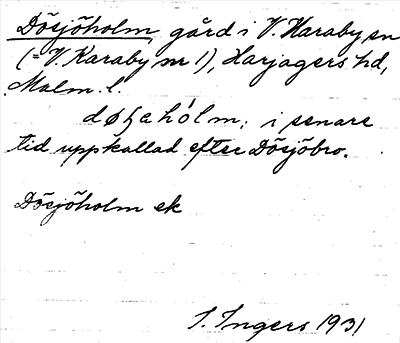 Dösjöholm, gård i V. Karaby sn
(= V. Karaby nr 1), Harjagers hd,
Malm. l.
døʃahólm; i senare
tid uppkallad efter Dösjöbro.
Dösjöholm ek
I. Ingers 1931